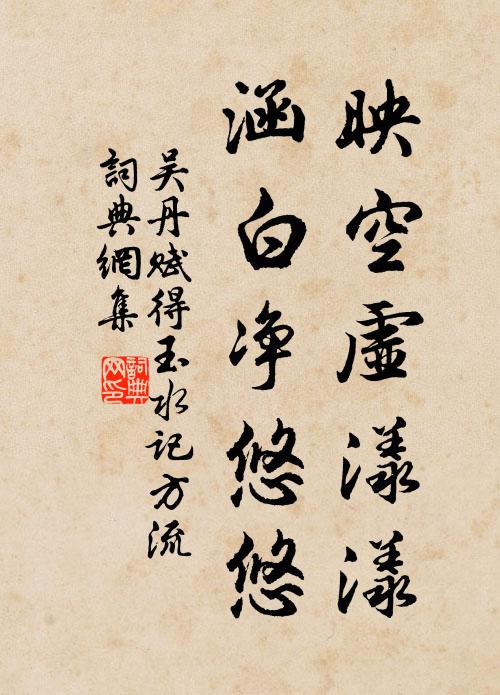 映空虛漾漾
涵白净悠悠
吴丹赋得玉水记方流
詞典網集
詞典網印